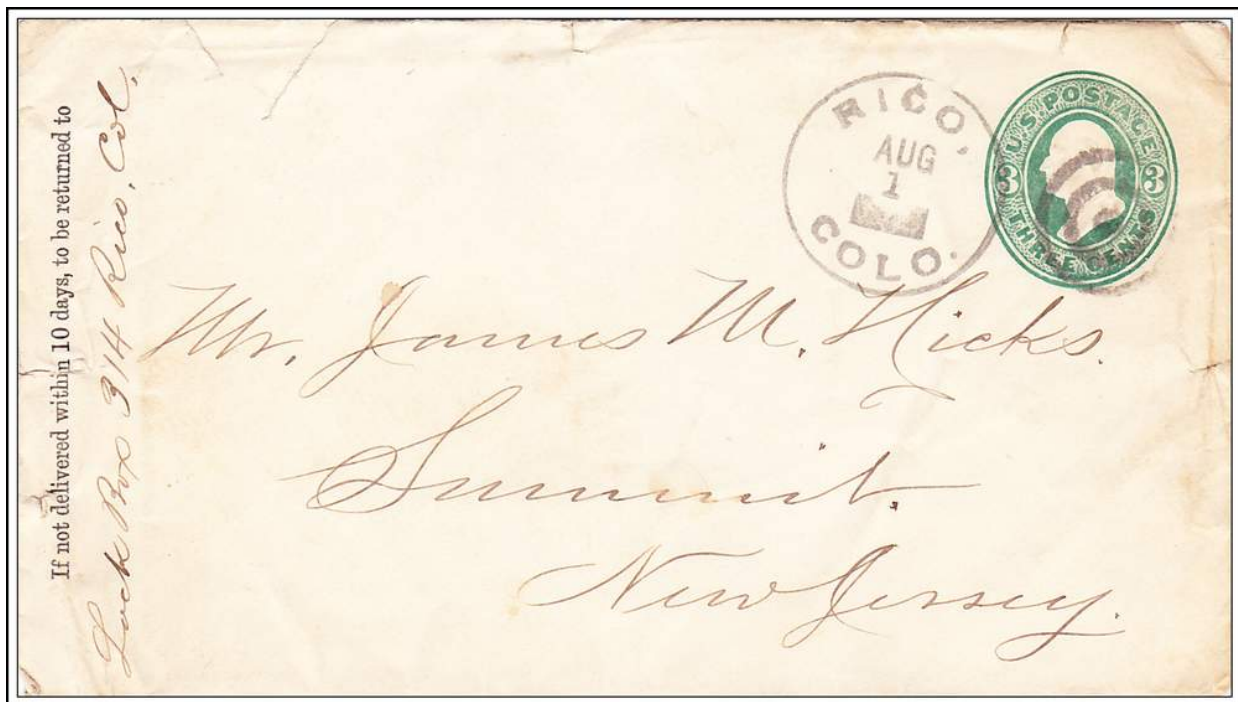 If not delivered within 10 days, to be returned to
Lock Box 314 Rico, Col.
RICO,
AUG
1
COLO.
U.S. POSTAGE
3 3
THREE CENTS
Mr. James M. Hicks.
Summit.
New Jersey.